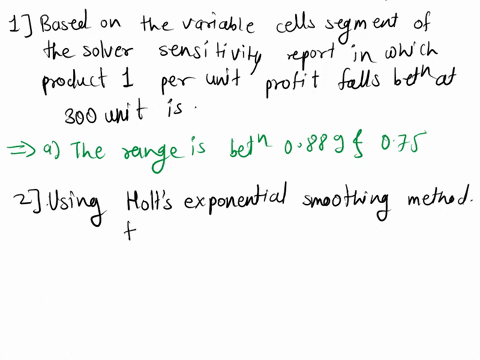 1] Based on the variable cells segment of
the solver sensitivity report in which
product 1 per unit profit falls bethn at
300 unit is.
⇒ a) The range is bethn 0.889 & 0.75
2] Using Holt's exponential smoothing method.
f